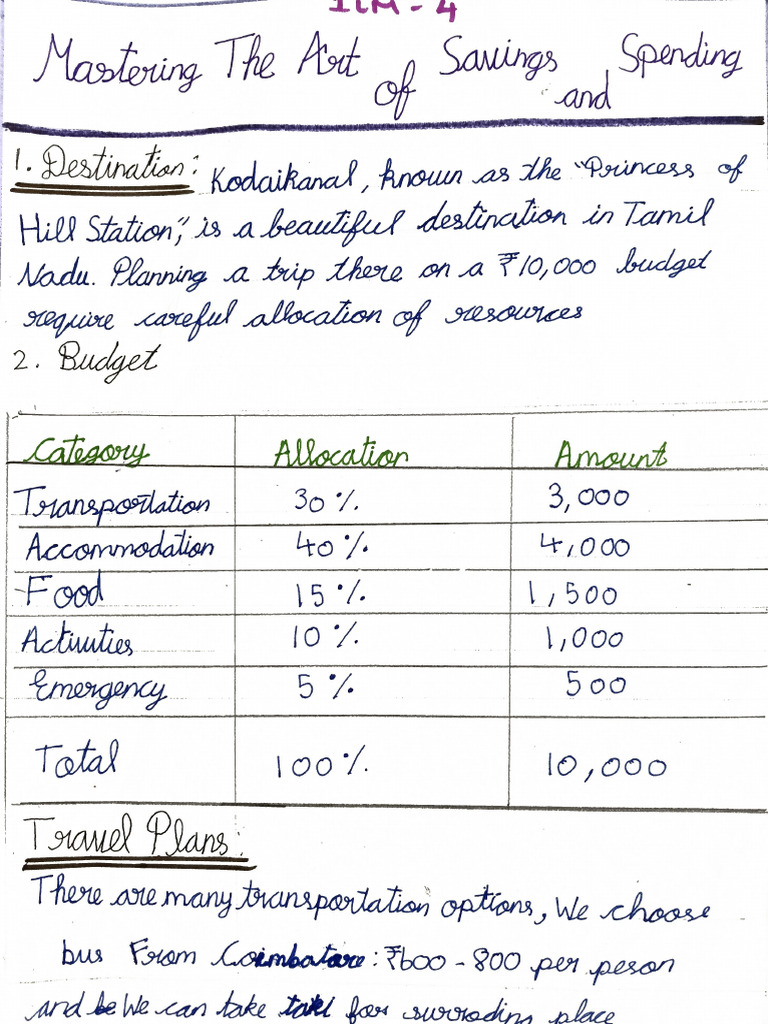 ICM - 4
Mastering The Art of Savings and Spending
1. Destination: Kodaikanal, known as the "Princess of
Hill Station", is a beautiful destination in Tamil
Nadu. Planning a trip there on a ₹10,000 budget
require careful allocation of resources
2. Budget
Category Allocation Amount
Transportation 30% 3,000
Accommodation 40% 4,000
Food 15% 1,500
Activities 10% 1,000
Emergency 5% 500
Total 100% 10,000
Travel Plans:
There are many transportation options, We choose
bus From Coimbatore: ₹600 - 800 per peson
and We can take for surroding place